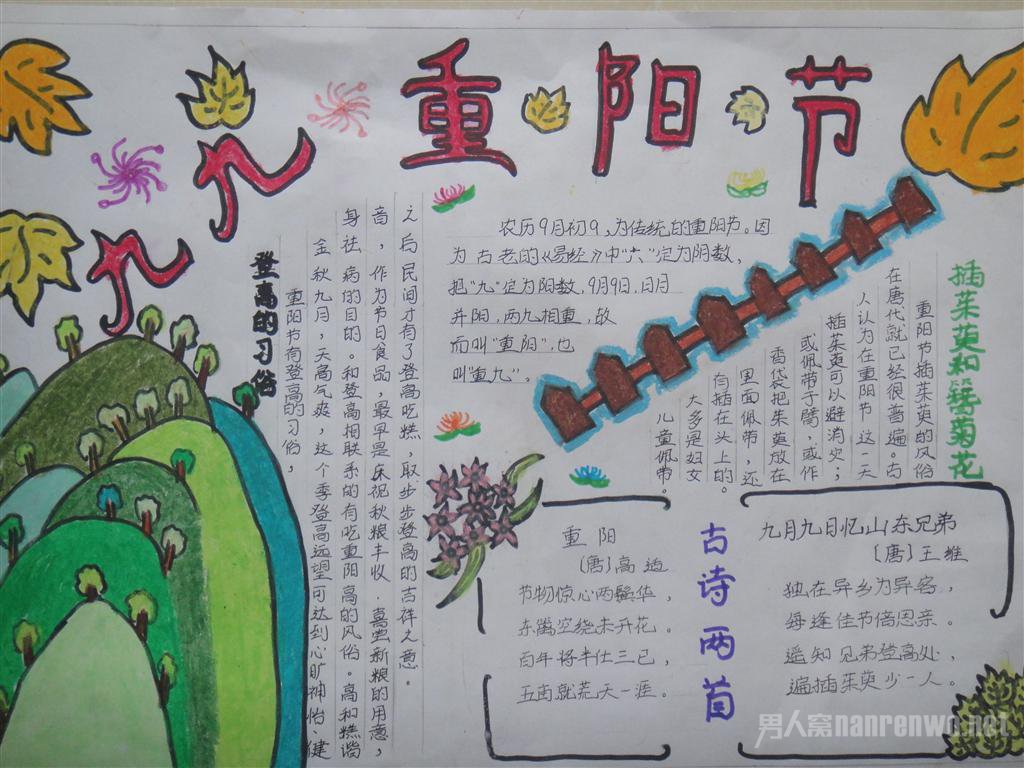 九九重阳节
登高的习俗
重阳节有登高的习俗,
金秋九月,天高气爽,这个季登高远望可达到心旷神怡、健
身祛病的目的。和登高相联系的有吃重阳高的风俗。高和糕谐
音,作为节日食品,最早是庆祝秋粮丰收.喜尝新粮的用意,
之后民间才有了登高吃糕,取步步登高的吉祥之意。
农历9月初9,为传统的重阳节。因
为古老的《易经》中“六”定为阴数,
把“九”定为阳数,9月9日,日月
并阳,两九相重,故
而叫“重阳”,也
叫“重九”。
插茱萸和簪菊花
重阳节插茱萸的风俗
在唐代就已经很普遍。古
人认为在重阳节这一天
插茱萸可以避消灾;
或佩带于臂,或作
香袋把茱萸放在
里面佩带,还
有插在头上的。
大多是妇女
儿童佩带。
古诗两首
重阳
〔唐〕高适
节物惊心两鬓华,
东篱空绕未开花。
百年将半仕三已,
五亩就荒天一涯。
九月九日忆山东兄弟
〔唐〕王维
独在异乡为异客,
每逢佳节倍思亲。
遥知兄弟登高处,
遍插茱萸少一人。
男人窝nanrenwo.net